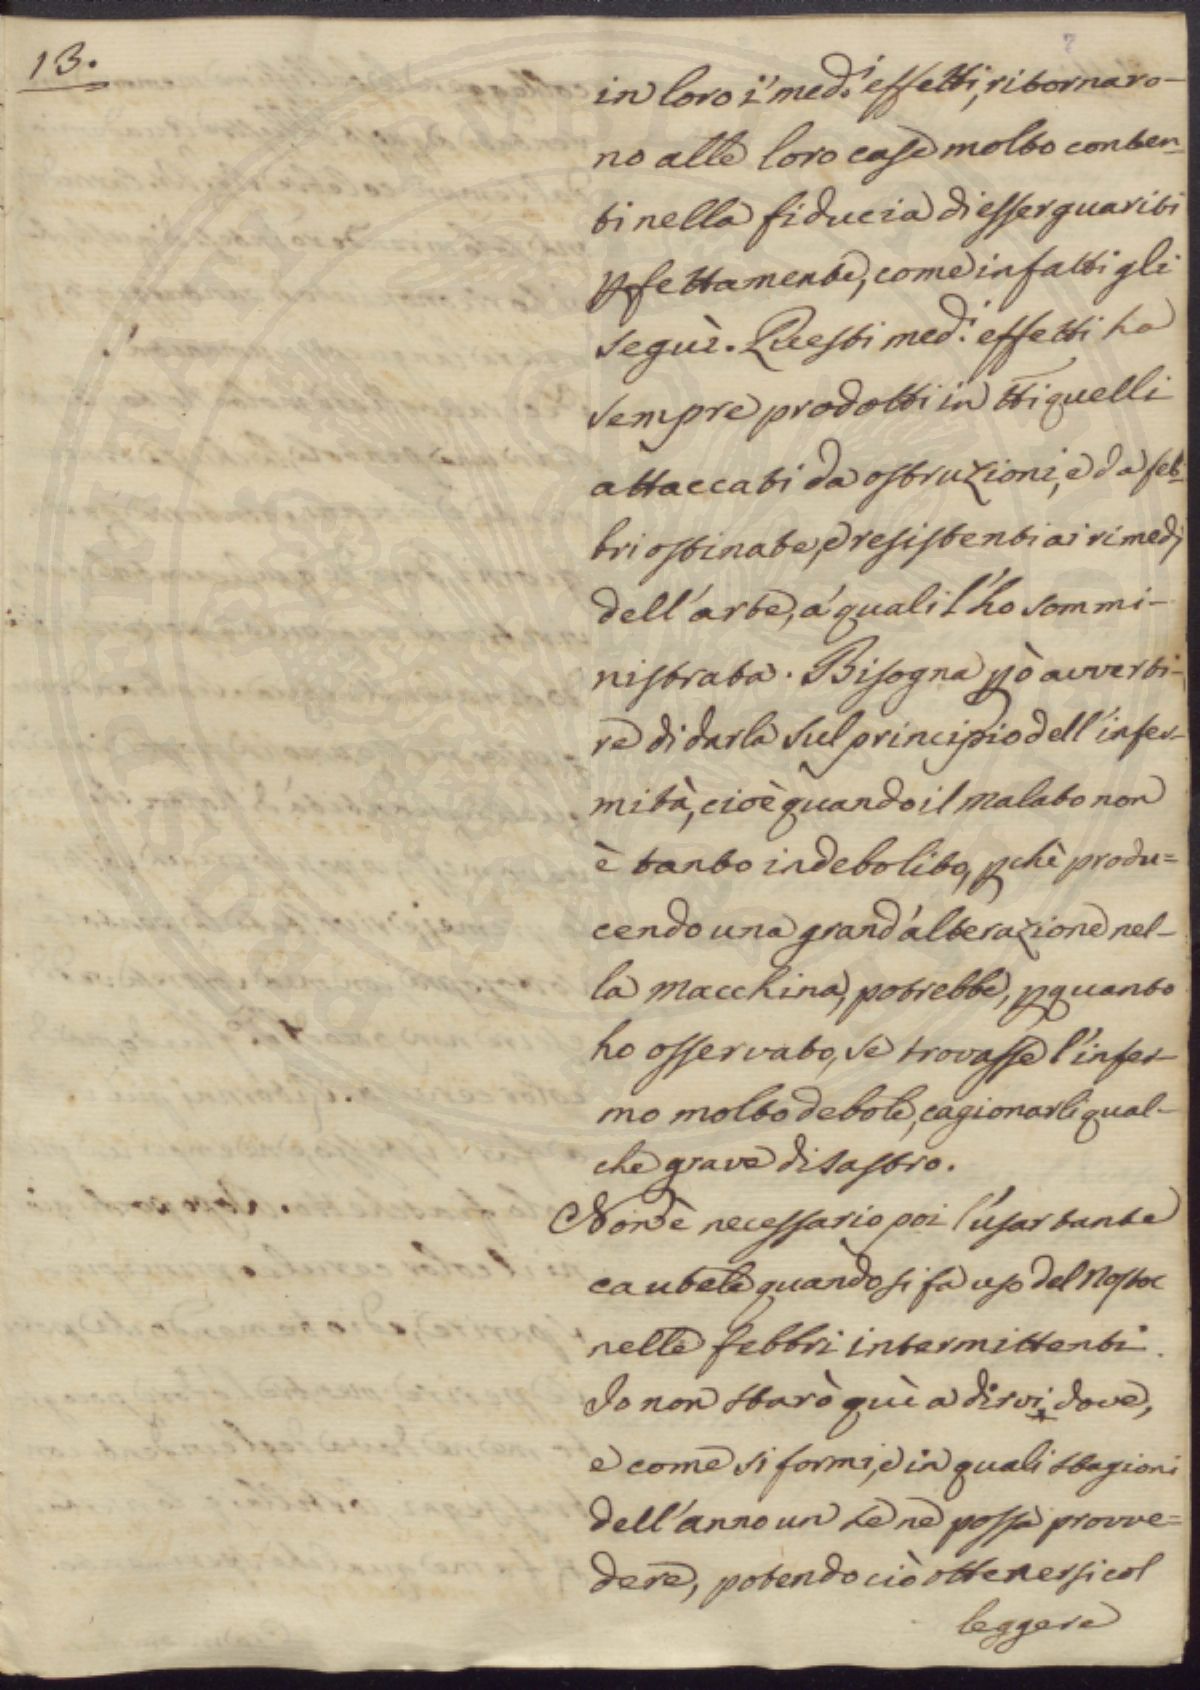 13.
in loro i med.i effetti, ritornaro-
no alle loro case molto conten-
ti nella fiducia di esser guariti
pfettamente, come infatti gli
seguì. Questi med.i effetti ha
sempre prodotti in tti quelli
attaccati da ostruzioni, e da feb-
bri ostinate, e resistenti ai rimedj
dell'arte, a' quali l'ho sommi-
nistrata. Bisogna pò avverti-
re di darla sul principio dell'infer-
mità, cioè quando il malato non
è tanto indebolito, pchè produ=
cendo una grand'alterazione nel-
la macchina, potrebbe, pquanto
ho osservato, se trovasse l'infer-
mo molto debole, cagionarli qual-
che grave disastro.
Non è necessario poi l'usar tante
cautele quando si fa uso del Nostoc
nelle febbri intermittenti.
Io non starò quì a dirvi dove,
e come si formi, e in quali stagioni
dell'anno un se ne possa provve=
dere, potendo ciò ottenersi col
leggere